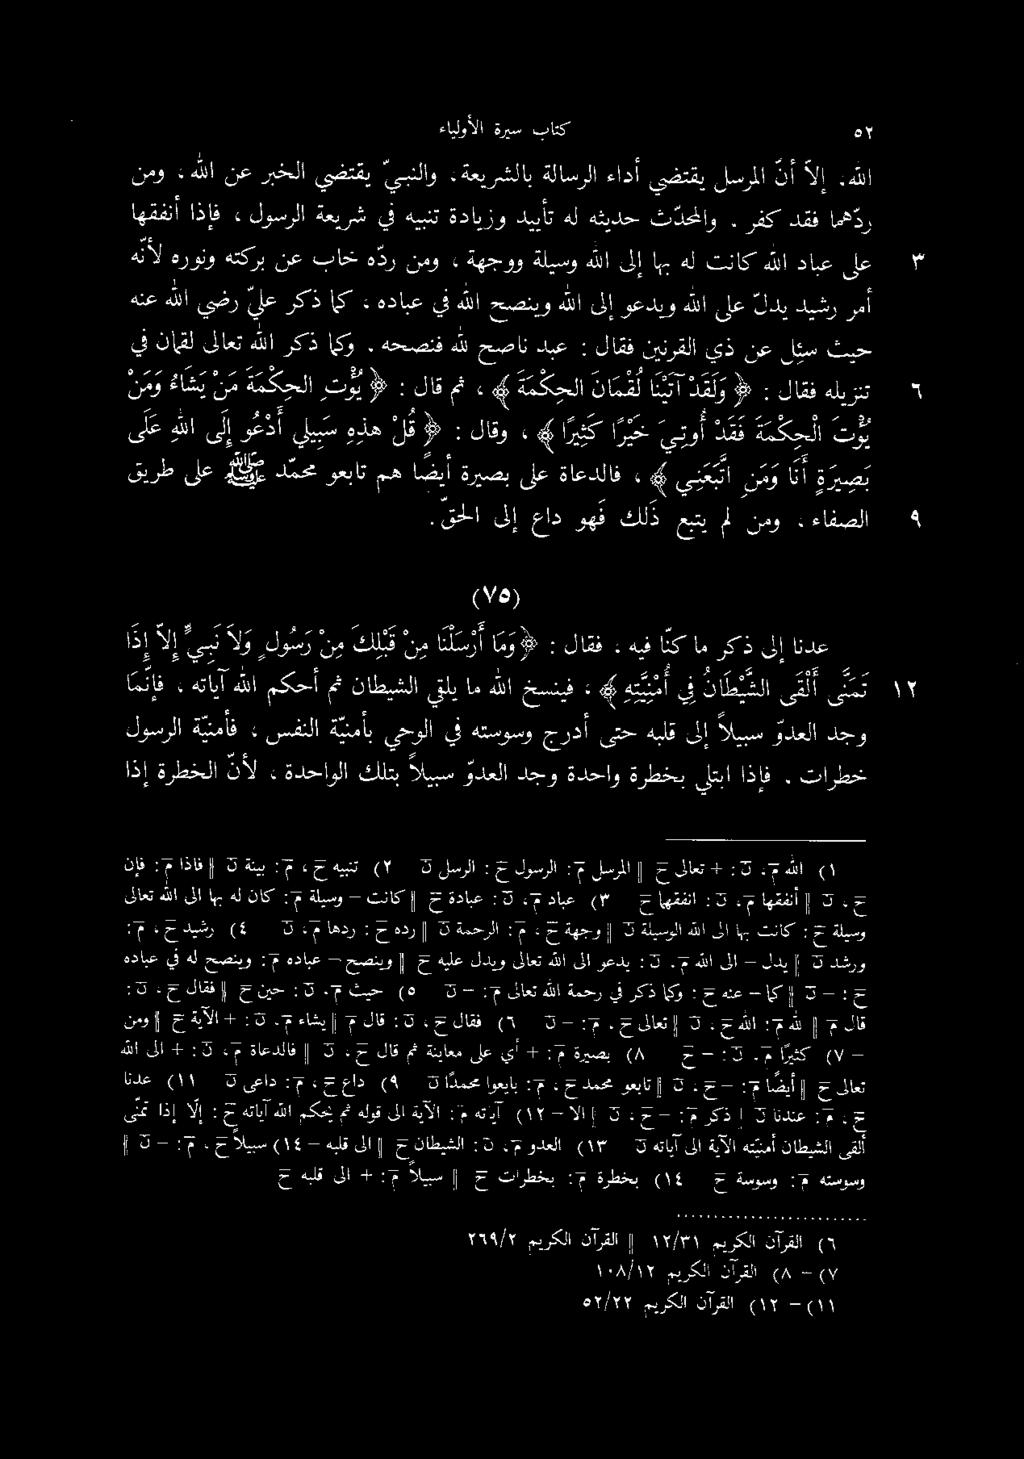 ٥٢ كتاب سيرة الأولياء
الله، إلاّ أنّ المرسل يقتضي أداء الرسالة بالشريعة، والنبيّ يقتضي الخبر عن الله، ومن
ردّهما فقد كفر. والمحدّث حديثه له تأييد وزيادة تنبيه في شريعة الرسول، فإذا أنفقها
٣ على عباد الله كانت له بها إلى الله وسيلة ووجهة، ومن ردّه خاب عن بركته ونوره لأنّه
أمر رشيد يدلّ على الله ويدعو إلى الله وينصح الله في عباده، كما ذكر عليّ رضي الله عنه
حيث سئل عن ذي القرنين فقال: عبد ناصح لله فنصحه. وكما ذكر الله تعالى لقمان في
٦ تنزيله فقال: ﴿وَلَقَدْ آتَيْنَا لُقْمَانَ الحِكْمَةَ﴾، ثم قال: ﴿يُؤْتِ الحِكْمَةَ مَنْ يَشَاءُ وَمَنْ
يُؤْتَ الْحِكْمَةَ فَقَدْ أُوتِيَ خَيْرًا كَثِيرًا﴾، وقال: ﴿قُلْ هذِهِ سَبِيلِي أَدْعُو إِلَى اللهِ عَلَى
بَصِيرَةٍ أَنَا وَمَنِ اتَّبَعَنِي﴾، فالدعاة على بصيرة أيضًا هم تابعو محمّد ﷺ على طريق
٩ الصفاء، ومن لم يتبع ذلك فهو داع إلى الحقّ.
(٧٥)
عدنا إلى ذكر ما كنّا فيه، فقال: ﴿وَمَا أَرْسَلْنَا مِنْ قَبْلِكَ مِنْ رَسُولٍ وَلاَ نَبِيٍّ إِلاَّ إِذَا
١٢ تَمَنَّى أَلْقَى الشَّيْطَانُ فِي أُمْنِيَّتِهِ﴾، فينسخ الله ما يلقي الشيطان ثم أحكم الله آياته، فإنّما
وجد العدوّ سبيلاً إلى قلبه حتى أدرج وسوسته في الوحي بأمنيّة النفس، فأمنيّة الرسول
خطرات. فإذا ابتلي بخطرة واحدة وجد العدوّ سبيلاً بتلك الواحدة، لأنّ الخطرة إذا
١) الله م، ن: + تعالى ح || المرسل م: الرسول ح: الرسل ن ٢) تنبيه ح، م: بينة ن || فاذا م: فإن
ح، ن || أنفقها م، ن: انفقها ح ٣) عباد م، ن: عبادة ح || كانت – وسيلة م: كان له بها الى الله تعالى
وسيلة ح: كانت بها الى الله الوسيلة ن || ووجهة ح، م: الرحمة ن || رده ح: ردها م، ن ٤) رشيد ح، م:
ورشد ن || يدل – الى الله م، ن: يدعو الى الله تعالى ويدل عليه ح || وينصح – عباده م: وينصح له في عباده
ح: – ن || كما – عنه ح: وكما ذكر في رحمة الله تعالى م: – ن ٥) حيث م، ن: حين ح || فقال ح، ن:
قال م || لله م: الله ح، ن || تعالى ح، م: – ن ٦) فقال ح، ن: قال م || يشاء م، ن: + الآية ح || ومن
– ٧) كثيرًا م، ن: – ح ٨) بصيرة م: + أي على معاينة ثم قال ح، ن || فالدعاة م، ن: + الى الله
تعالى ح || أيضًا م: – ح، ن || تابعو محمد ح، م: بايعوا محمدًا ن ٩) داع ح، م: داعي ن ١١) عدنا
ح، م: عندنا ن || ذكر م: – ح، ن || الا – ١٢) آياته م: الآية الى قوله ثم يحكم الله آياته ح: إلّا إذا تمنّى
ألقى الشيطان أمنيته الآية الى آياته ن ١٣) العدو م، ن: الشيطان ح || الى قلبه – ١٤) سبيلاً ح، م: – ن ||
وسوسته م: وسوسة ح ١٤) بخطرة م: بخطرات ح || سبيلاً م: + الى قلبه ح
٦) القرآن الكريم ١٢/٣١ || القرآن الكريم ٢٦٩/٢
٧) – ٨) القرآن الكريم ١٠٨/١٢
١١) – ١٢) القرآن الكريم ٥٢/٢٢